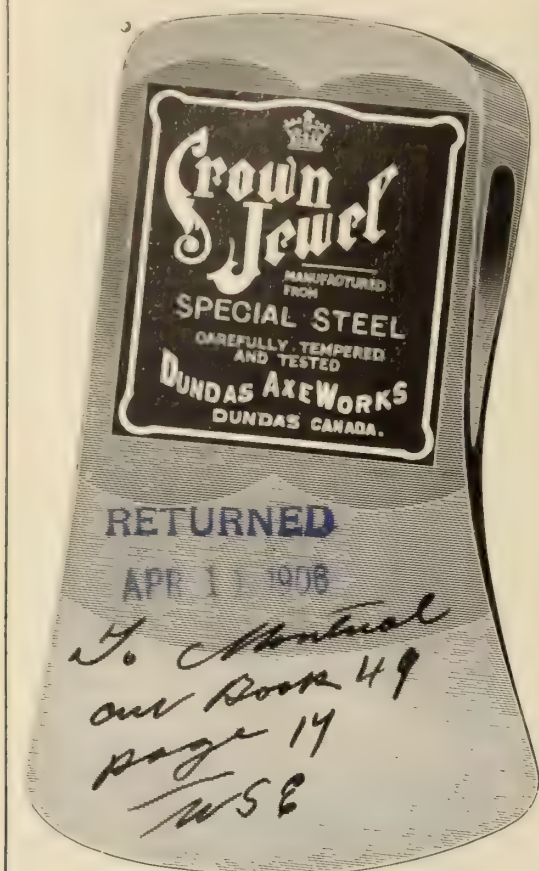 Crown
Jewel
MANUFACTURED
FROM
SPECIAL STEEL
CAREFULLY TEMPERED
AND TESTED
DUNDAS AXE WORKS
DUNDAS CANADA.
RETURNED
APR 11 1908
To Montreal
our Book 49
page 14
WSE